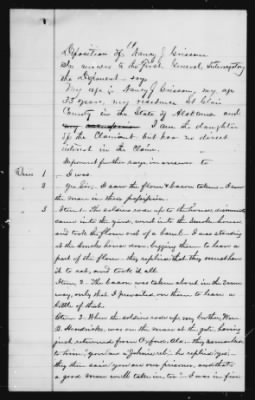 Deposition of Nancy J Grissom
In answer to the first General Interrogatory
the Deponent — says
My age is Nancy J Grissom, my age
35 years, my residence St Clair
County in the State of Alabama and
I am the daughter
of the Claimant but has no direct
interest in the Claim.
Deponent further says in answer to
Ques 1 — I was
2 — Yes Sir. I saw the flour & bacon taken. I saw
the man in their possession.
3 Item 1. The soldiers rode up to the house, dismounted
came into the yard, went into the smoke house
and took the flour out of a barrel. I was standing
at the smoke house door, begging them to leave a
part of the flour — they replied that they must have
it to eat, and took it all.
Item 2. The bacon was taken about in the same
way, only that I prevailed on them to leave a
little of that.
Item 3. When the soldiers rode up, my brother, Wm
B. Hendricks, was on the mare at the gate, having
just returned from Oxford, Ala. they remarked
to him, "you are a Johnnie, eh" he replied yes —
they then said "you are our prisoner, and that's
a good mare we'll take in too" — I was in five